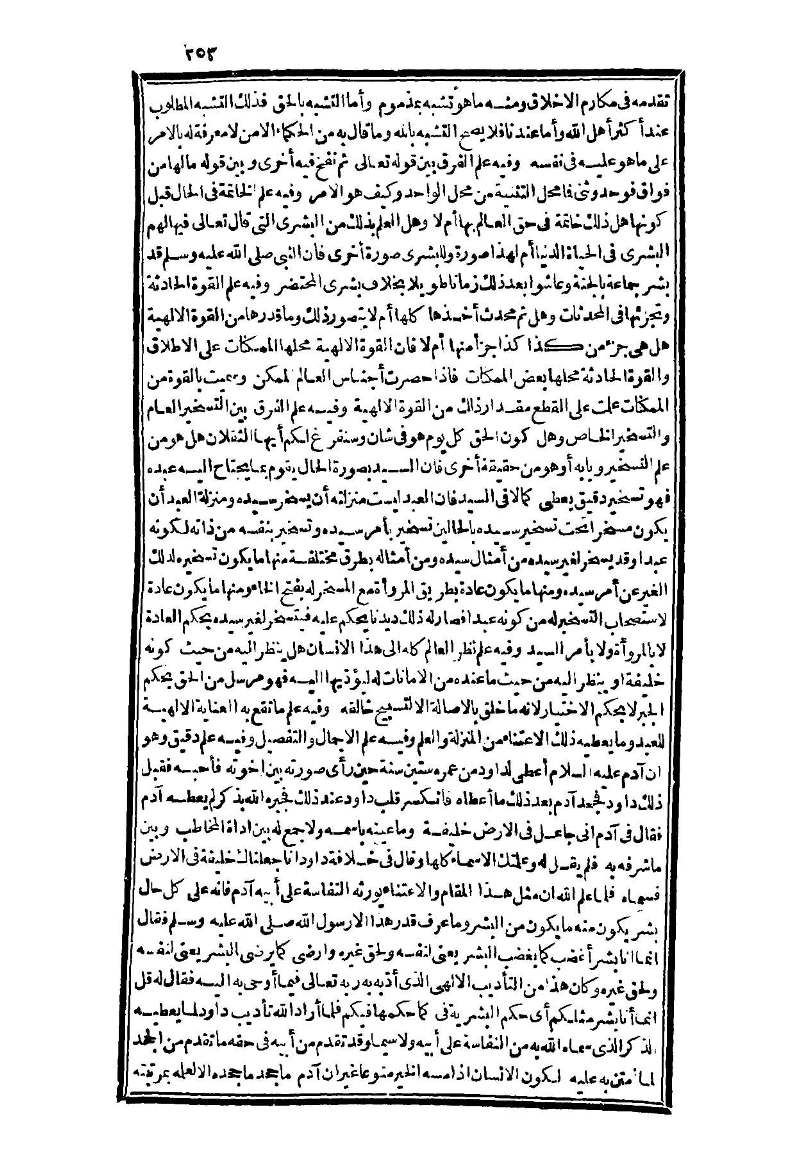 ٢٥٣
تقدمه فى مكارم الاخلاق ومنه ما هو تشبه بمذموم وأما التشبه بالحق فذلك التشبه المطلوب
عند أكثر أهل الله وأما عندنا فلا يصح التشبه بالله وما قال به من الحكماء الامن لا معرفة له بالامر
على ما هو عليه فى نفسه وفيه علم الفرق بين قوله تعالى ثم نفخ فيه أخرى وبين قوله ما لها من
فواق فوحد وثنى فا محل التثنية من محل الواحد وكيف هو الامر وفيه علم الخاتمة فى الحال قبل
كونها هل ذلك خاتمة فى حق العالم بها أم لا وهل العلم بذلك من البشرى التى قال تعالى فيها لهم
البشرى فى الحياة الدنيا أم لهذا صورة وللبشرى صورة أخرى فان النبى صلى الله عليه وسلم قد
بشر جماعة بالجنة وعاشوا بعد ذلك زمانا طويلا بخلاف بشرى المحتضر وفيه علم القوة الحادثة
وتجزئها فى المحدثات وهل ثم محدث أخذها كلها أم لا يتصور ذلك وما قدرها من القوة الالهية
هل هى جزء من كذا كذا جزأ منها أم لا فان القوة الالهية محلها الممكنات على الاطلاق
والقوة الحادثة محلها بعض الممكات فاذا حصرت أجناس العالم لممكن وسميت بالقوة من
الممكنات علمت على القطع مقدار ذلك من القوة الالهية وفيه علم الفرق بين التسخير العام
والتسخير الخاص وهل كون الحق كل يوم هو فى شان وسنفرغ لكم أيها الثقلان هل هو من
علم التسخير وبابه أو هو من حقيقة أخرى فان السيد بصورة الحال يقوم بما يحتاج اليه عبده
فهو تسخير دقيق يعطى كمالا فى السيد فان العبد ليست منزلته أن يسخر سيده ومنزلة العبد أن
يكون مسخرا تحت تسخير سيده بالحالين تسخير بأمر سيده وتسخير بنفسه من ذاته لكونه
عبدا وقد يسخر لغير سيده من أمثال سيده ومن أمثاله بطرق مختلفة منها ما يكون تسخيره لذلك
الغير عن أمر سيده ومنها ما يكون عادة بطريق المروأة مع المسخر له بفتح الخاء ومنها ما يكون عادة
لاستصحاب التسخير له من كونه عبدا فصار له ذلك ديدنا يحكم عليه فيتسخر لغير سيده بحكم العادة
لا بالمروأة ولا بأمر السيد وفيه علم نظر العالم كله الى هذا الانسان هل ينظر اليه من حيث كونه
خليفة أو ينظر اليه من حيث ما عنده من الامانات له ليؤديها اليه فهو مرسل من الحق بحكم
الجبر لا بحكم الاختيار لانه ما خلق بالاصالة الا لتسبيح خالقه وفيه علم ما تقع به العناية الالهية
للعبد وما يعطيه ذلك الاعتناء من المنزلة والعلم وفيه علم الاجمال والتفصيل وفيه علم دقيق وهو
ان آدم عليه السلام أعطى لداود من عمره ستين سنة حين رأى صورته بين اخوته فأحبه فقبل
ذلك داود فجحد آدم بعد ذلك ما أعطاه فانكسر قلب داود عند ذلك فجبره الله بذكر لم يعطه آدم
فقال فى آدم انى جاعل فى الارض خليفة وما عينه باسمه ولا جمع له بين أداة المخاطب وبين
ما شرفه به فلم يقل له وعلمتك الاسماء كلها وقال فى خلافة داود انا جعلناك خليفة فى الارض
فسماه فلما علم الله ان مثل هذا المقام والاعتناء يورثه النفاسة على أبيه آدم فانه على كل حال
بشر يكون منه ما يكون من البشر وما عرف قدر هذا الا رسول الله صلى الله عليه وسلم فقال
انما انا بشر أغضب كما يغضب البشر يعنى لنفسه ولحق غيره وارضى كما يرضى البشر يعنى لنفسه
ولحق غيره وكان هذا من التأديب الالهى الذى أدبه به ربه تعالى فيما أوحى به اليه فقال له قل
انما أنا بشر مثلكم أى حكم البشرية فى كما حكمها فيكم فلما أراد الله تأديب داود لما يعطيه
الذكر الذى سماه الله به من النفاسة على أبيه ولاسيما وقد تقدم من أبيه فى حقه ما تقدم من الجحد
لما امتن به عليه لكون الانسان اذا مسه الخير منوعا غير ان آدم ما جحد ما جحده الا لعلمه بمرتبته